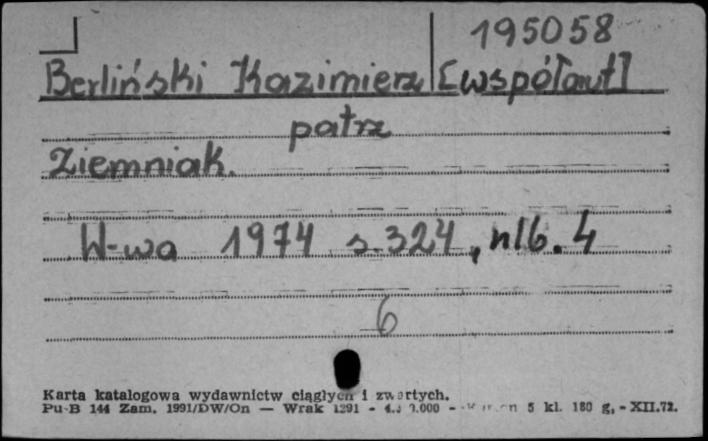 195058
Berliński Kazimierz [współaut]
patrz
Ziemniak.
W-wa 1974 s.324, nlb. 4
6
Karta katalogowa wydawnictw ciągłych i zwartych.
Pu-B 144 Zam. 1991/DW/On — Wrak 1291 - 5 kl. 180 g, - XII.72.